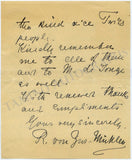 the kind nice
people.
Kindly remember
me to all of them
and to M. de Jonge
as well.
With renewed thanks
and compliments
Yours very sincerely,
R. von Zur Mühlen